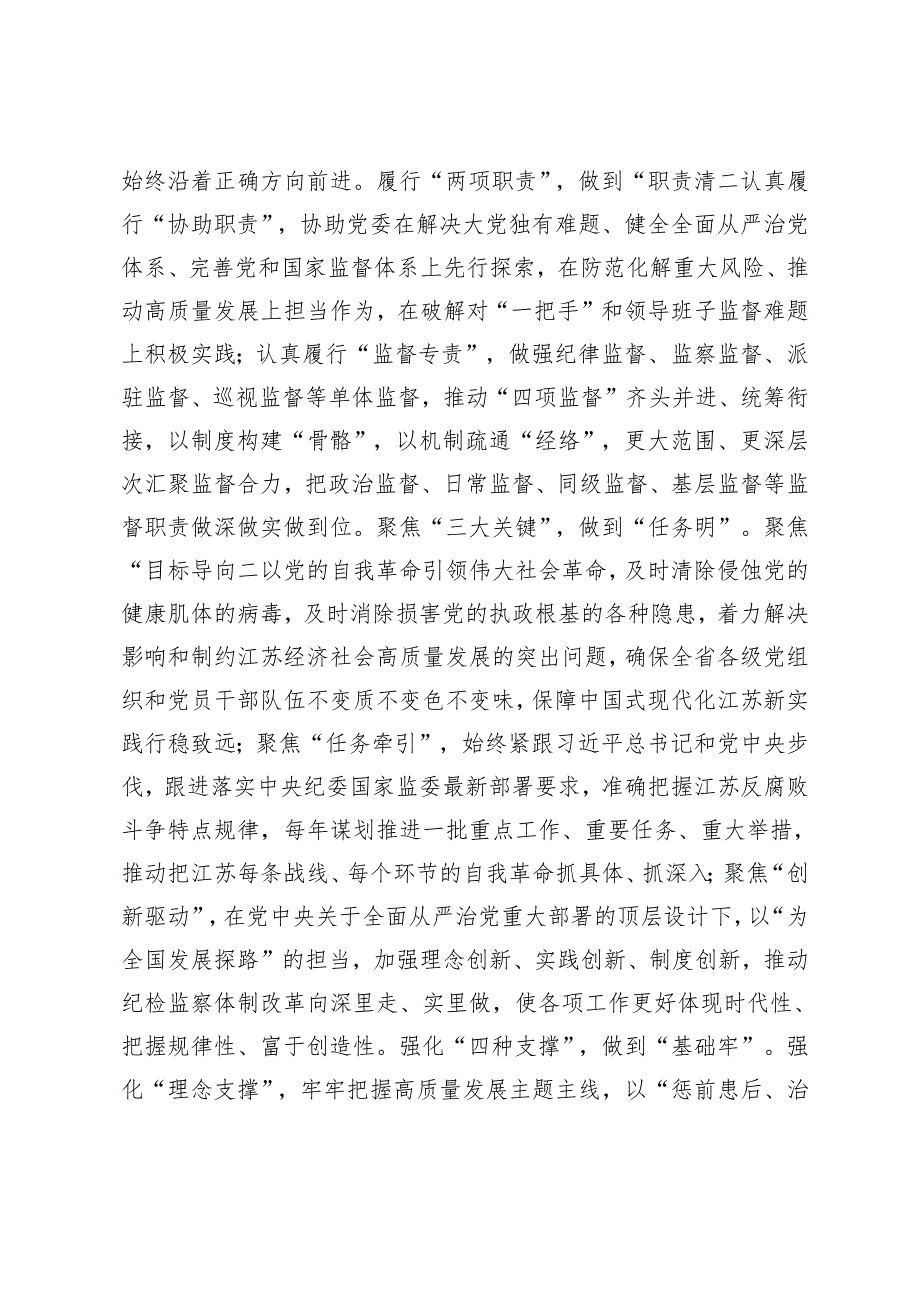 始终沿着正确方向前进。履行“两项职责”，做到“职责清二认真履
行“协助职责”，协助党委在解决大党独有难题、健全全面从严治党
体系、完善党和国家监督体系上先行探索，在防范化解重大风险、推
动高质量发展上担当作为，在破解对“一把手”和领导班子监督难题
上积极实践；认真履行“监督专责”，做强纪律监督、监察监督、派
驻监督、巡视监督等单体监督，推动“四项监督”齐头并进、统筹衔
接，以制度构建“骨骼”，以机制疏通“经络”，更大范围、更深层
次汇聚监督合力，把政治监督、日常监督、同级监督、基层监督等监
督职责做深做实做到位。聚焦“三大关键”，做到“任务明”。聚焦
“目标导向二以党的自我革命引领伟大社会革命，及时清除侵蚀党的
健康肌体的病毒，及时消除损害党的执政根基的各种隐患，着力解决
影响和制约江苏经济社会高质量发展的突出问题，确保全省各级党组
织和党员干部队伍不变质不变色不变味，保障中国式现代化江苏新实
践行稳致远；聚焦“任务牵引”，始终紧跟习近平总书记和党中央步
伐，跟进落实中央纪委国家监委最新部署要求，准确把握江苏反腐败
斗争特点规律，每年谋划推进一批重点工作、重要任务、重大举措，
推动把江苏每条战线、每个环节的自我革命抓具体、抓深入；聚焦“创
新驱动”，在党中央关于全面从严治党重大部署的顶层设计下，以“为
全国发展探路”的担当，加强理念创新、实践创新、制度创新，推动
纪检监察体制改革向深里走、实里做，使各项工作更好体现时代性、
把握规律性、富于创造性。强化“四种支撑”，做到“基础牢”。强
化“理念支撑”，牢牢把握高质量发展主题主线，以“惩前患后、治